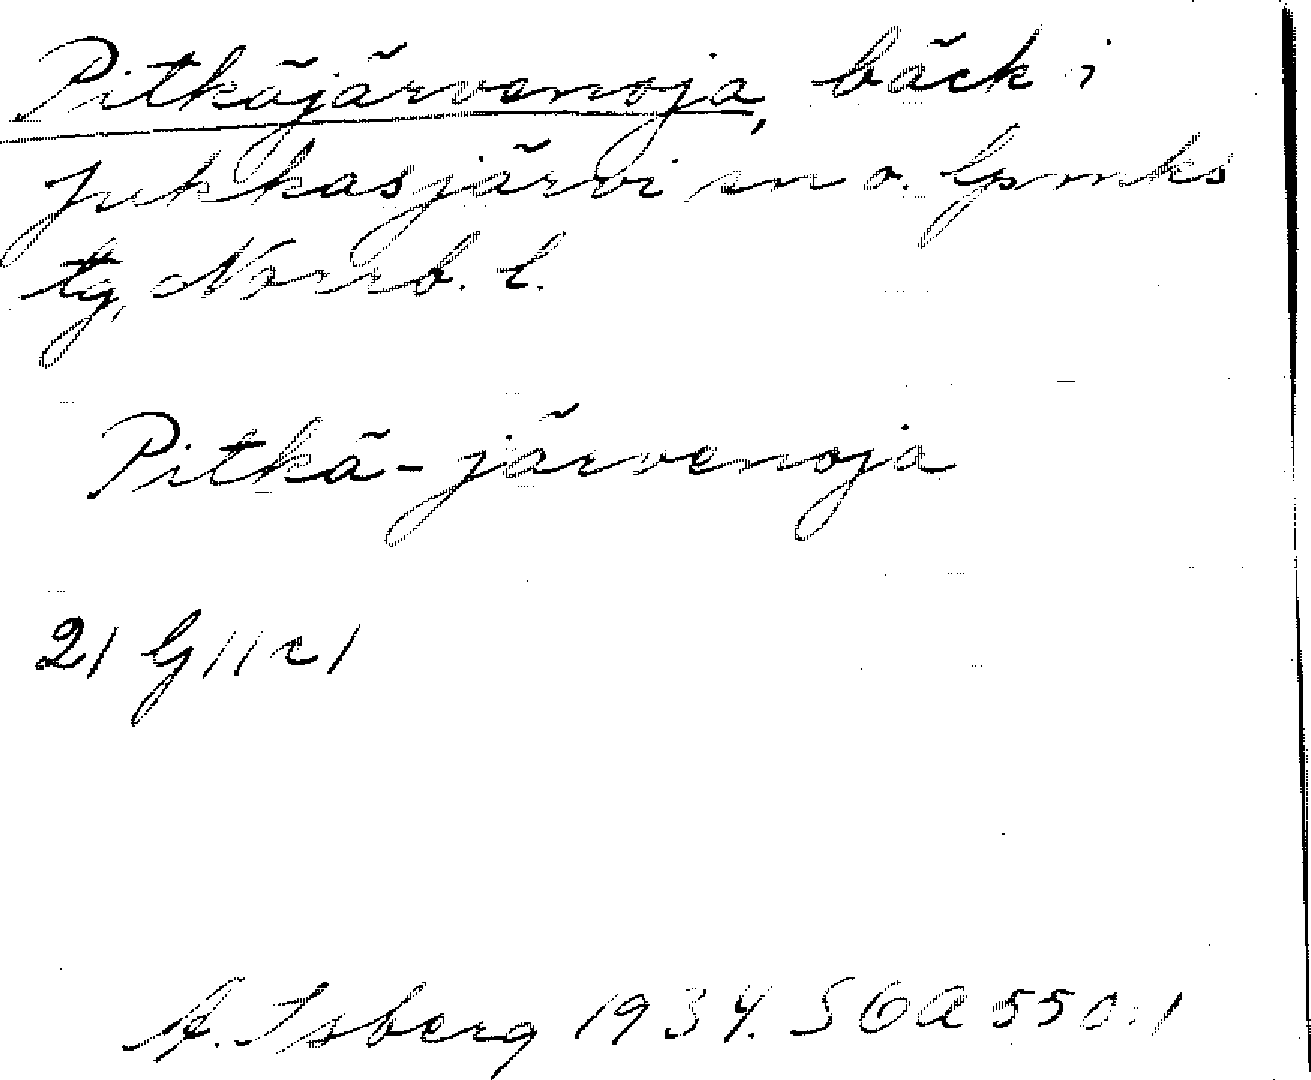 Pitkäjärvenoja, bäck i
Jukkasjärvi sn o. lpmks
tg, Norrb. l.
Pitkä-järvenoja
21 G 11 c 1
A. Isberg 1934. SOA 550:1